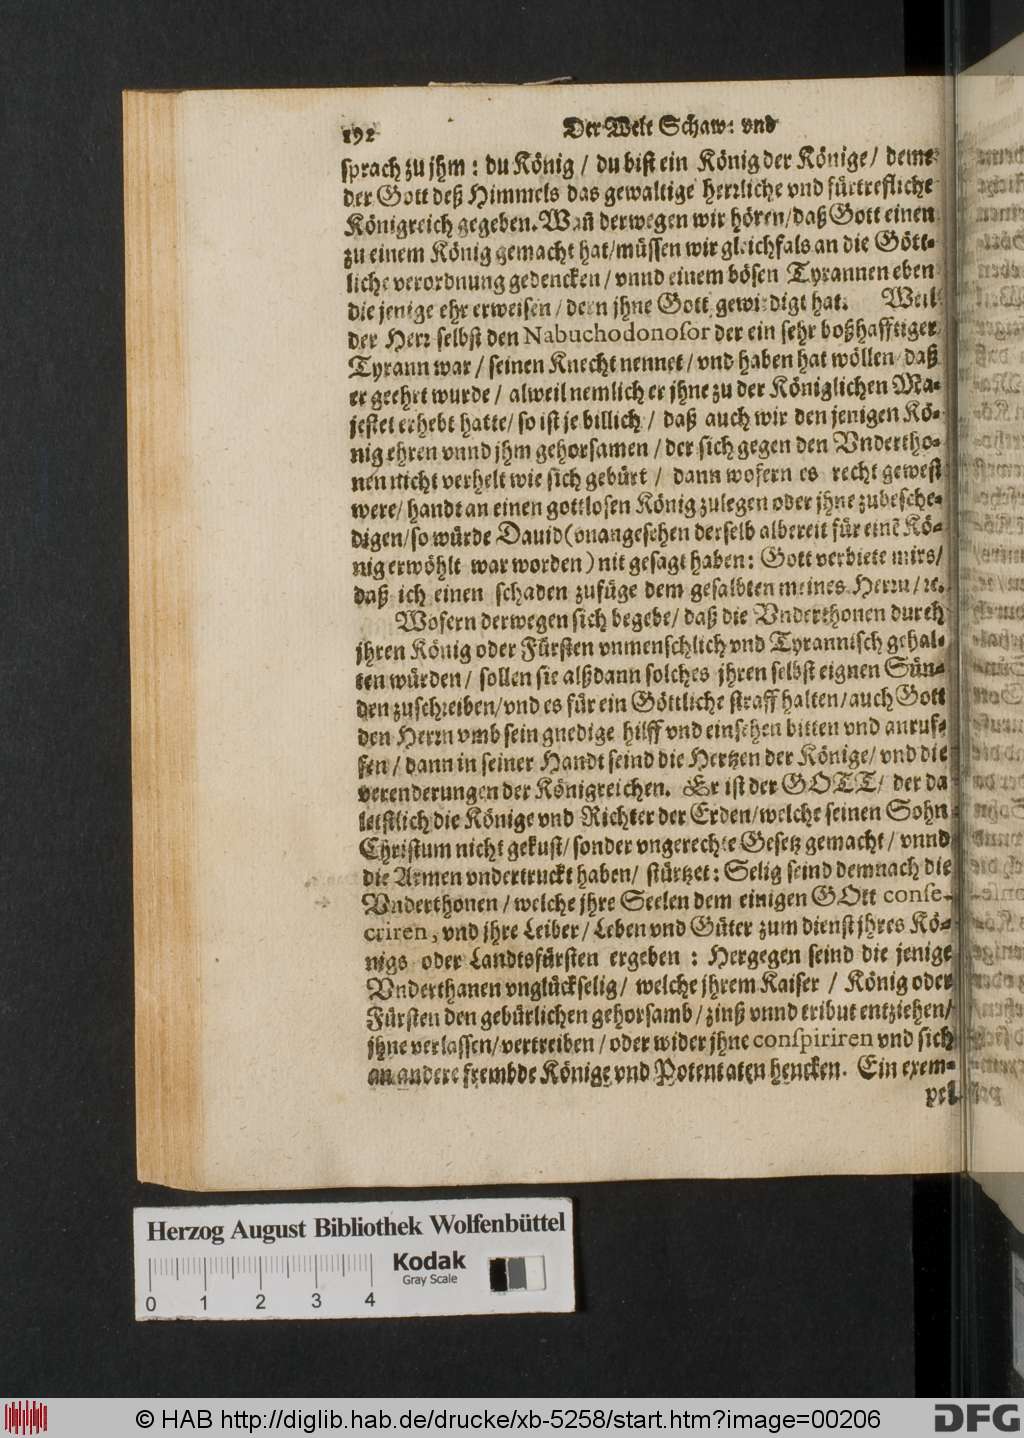 192 Der Welt Schaw: vnd
sprach zu jhm: du König / du bist ein König der Könige / deme
der Gott deß Himmels das gewaltige herrliche vnd fürtrefliche
Königreich gegeben. Wañ derwegen wir hören / daß Gott einen
zu einem König gemacht hat / müssen wir gleichfals an die Gött-
liche verordnung gedencken / vnnd einem bösen Tyrannen eben
die jenige ehr erweisen / deren jhne Gott gewirdigt hat. Weil
der Herr selbst den Nabuchodonosor der ein sehr boßhafftiger
Tyrann war / seinen Knecht nennet / vnd haben hat wöllen / daß
er geehrt wurde / alweil nemlich er jhne zu der Königlichen Ma-
jestet erhebt hatte / so ist je billich / daß auch wir den jenigen Kö-
nig ehren vnnd jhm gehorsamen / der sich gegen den Vndertho-
nen nicht verhelt wie sich gebürt / dann wofern es recht gewest
were / handt an einen gottlosen König zulegen oder jhne zubesche-
digen / so würde Dauid (vnangesehen derselb albereit für einẽ Kö-
nig erwöhlt war worden) nit gesagt haben: Gott verbiete mirs /
daß ich einen schaden zufüge dem gesalbten meines Herrn / ꝛc.
Wofern derwegen sich begebe / daß die Vnderthonen durch
jhren König oder Fürsten vnmenschlich vnd Tyrannisch gehal-
ten würden / sollen sie alßdann solches jhren selbst eignen Sün-
den zuschreiben / vnd es für ein Göttliche straff halten / auch Gott
den Herrn vmb sein gnedige hilff vnd einsehen bitten vnd anruf-
fen / dann in seiner Handt seind die Hertzen der Könige / vnd die
verenderungen der Königreichen. Er ist der GOTT / der da
letstlich die Könige vnd Richter der Erden / welche seinen Sohn
Christum nicht gekust / sonder vngerechte Gesetz gemacht / vnnd
die Armen vndertruckt haben / stürtzet: Selig seind demnach die
Vnderthonen / welche jhre Seelen dem einigen GOtt conse-
criren, vnd jhre Leiber / Leben vnd Güter zum dienst jhres Kö-
nigs oder Landtsfürsten ergeben: Hergegen seind die jenige
Vnderthanen vnglückselig / welche jhrem Kaiser / König oder
Fürsten den gebürlichen gehorsamb / zinß vnnd tribut entziehen /
jhne verlassen / vertreiben / oder wider jhne conspiriren vnd sich
an andere frembde Könige vnd Potentaten hencken. Ein exem-
pel
Herzog August Bibliothek Wolfenbüttel
Kodak
Gray Scale
0 1 2 3 4
© HAB http://diglib.hab.de/drucke/xb-5258/start.htm?image=00206
DFG